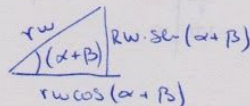 rw
(α+β)
Rw·se(α+β)
rwcos(α+β)